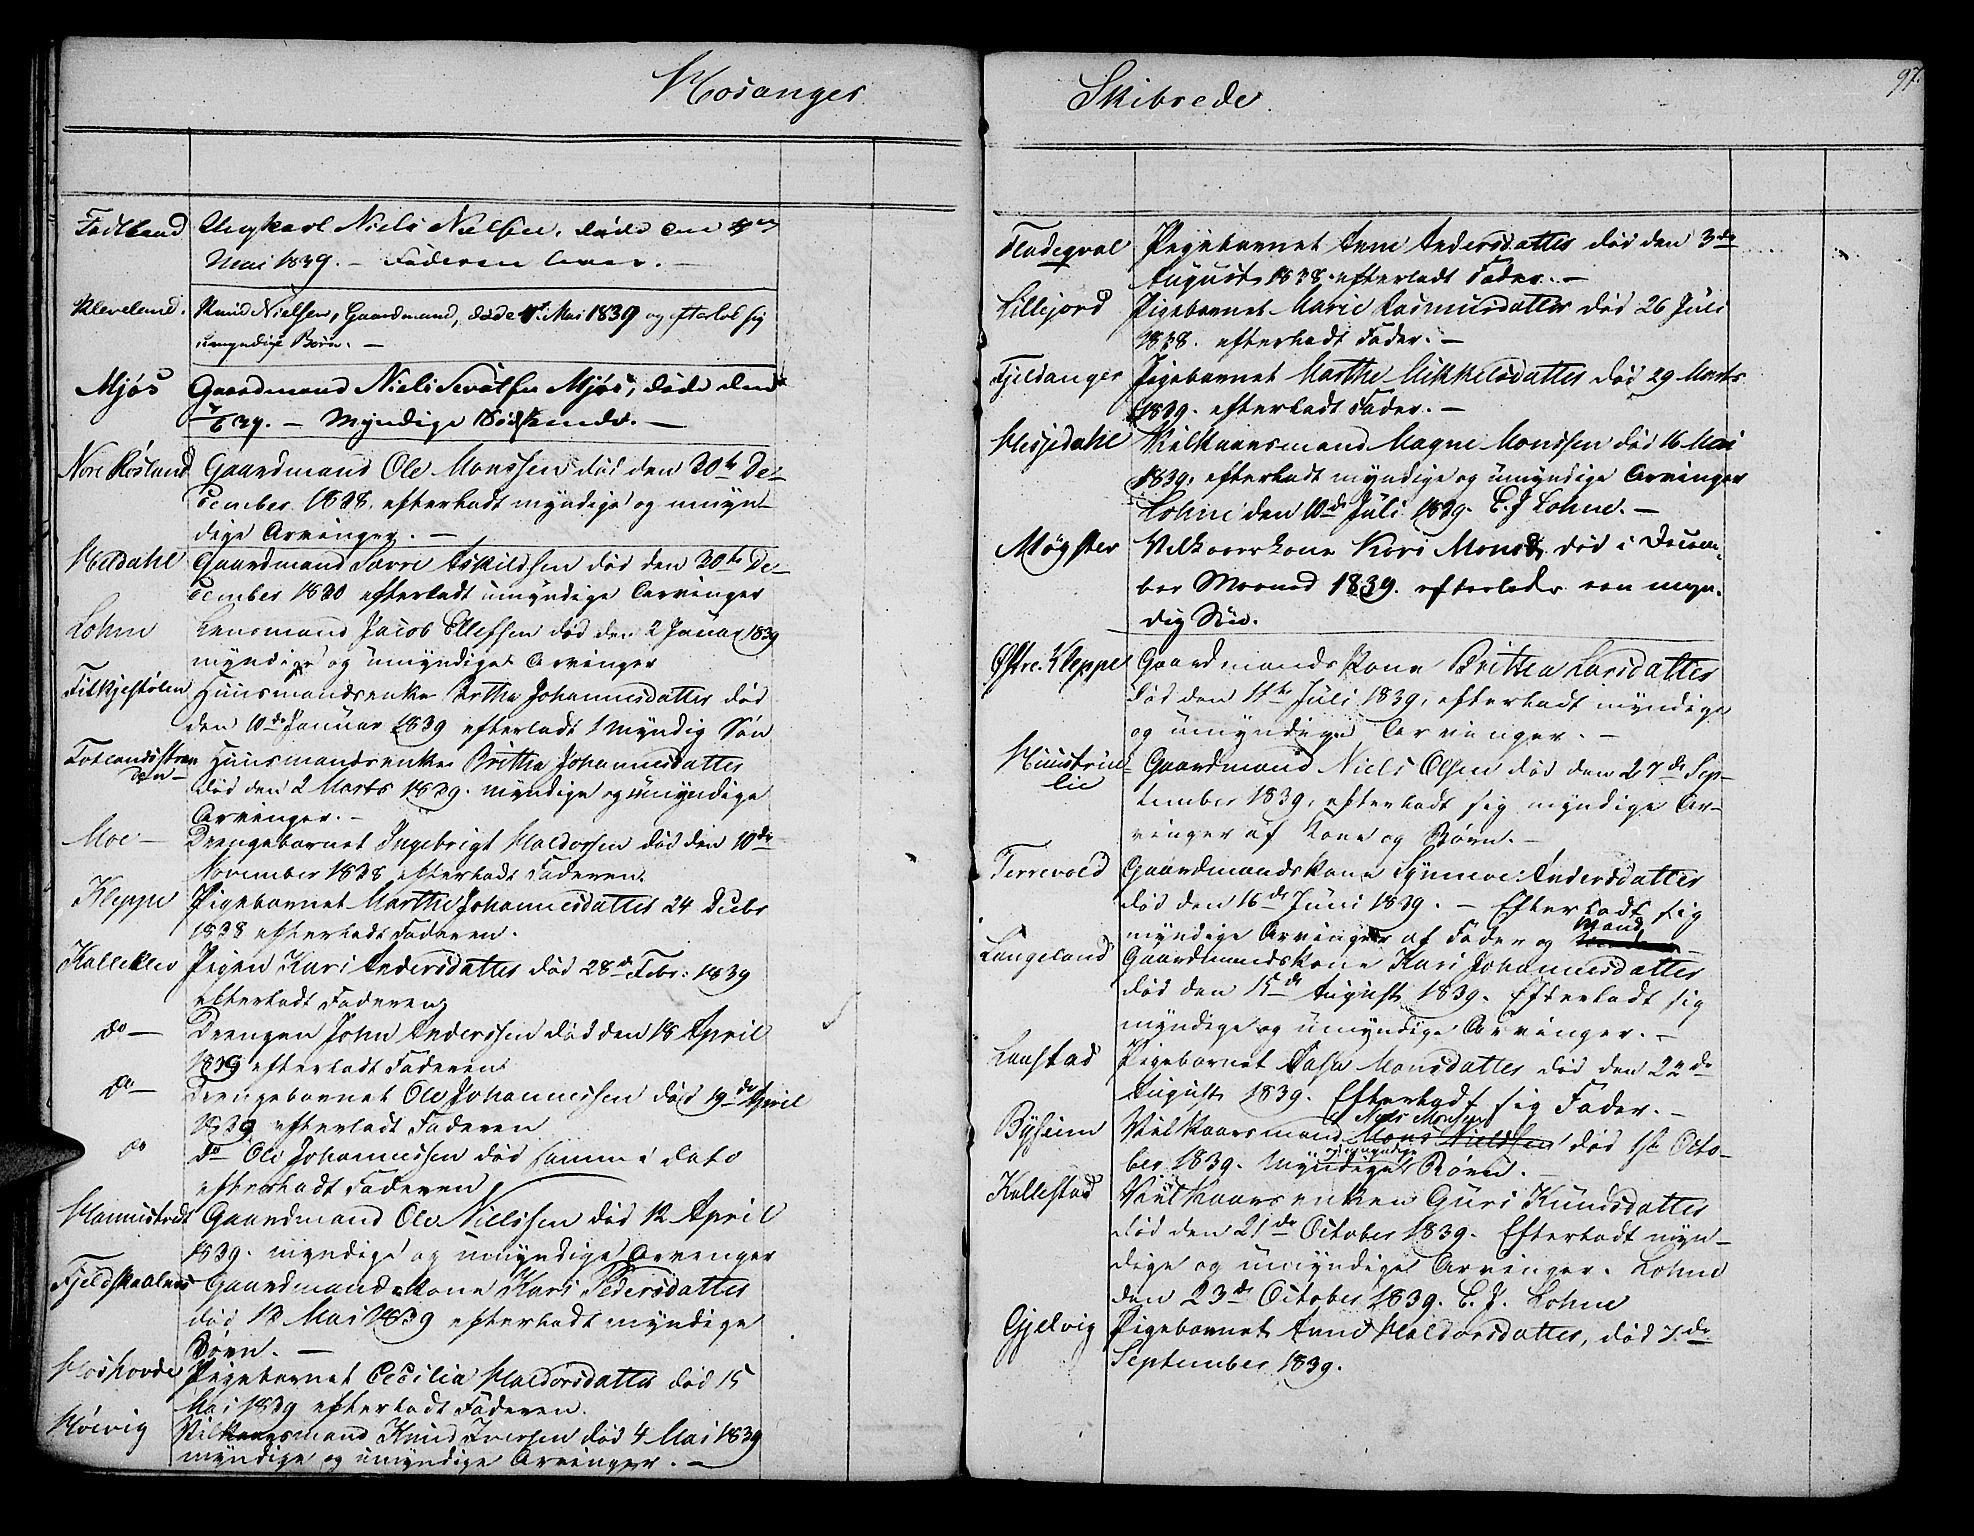 Hosanger
Fadland Ungkarl Niels Nielsen, døde den
Mai 1839. – Faderen lever. –
Kleveland. Knud Nielsen, Gaardmand, døde 1st Mai 1839 og efterlod sig
umyndige Børn. –
Mjøs Gaardmand Niels Mjøs, døde den
/6 39. – Myndige –
Nore Røsland Gaardmand Ole Monssen død den 30te De-
cember 1838. efterladt myndige og umyn-
dige Arvinger. –
Heldahl Gaardmand Sævre Askildsen død den 30te De-
cember 1830 efterladt umyndige Arvinger
Lohne Lensmand Jacob Ellefsen død den 2 Januar 1839
myndige og umyndige Arvinger
Fitkjestølen Huusmandsenke Brithe Johannesdatter død
den 10de Januar 1839 efterladt 1 myndig Søn
Fotlandsstran
den – Huusmandsenke Brithe Johannesdatter
død den 2 Marts 1839. myndige og umyndige
Arvinger. –
Moe – Drengebarnet Ingebrigt Haldorsen død den 10de
November 1838 efterladt Faderen.
Kleppe Pigebarnet Marthe Johannesdatter 24 Decbr
1838 efterladt Faderen.
Kalleklev Pigen Kari Andersdatter død 28de Febr: 1839
efterladt Faderen
do – Drengen John Anderssen død den 18 April
1839 efterladt Faderen
do – Drengebarnet Ole Johannessen død 19de April
1839 efterladt Faderen
do do Ole Johannessen død samme dato
efterladt Faderen
Hannistvedt Gaardmand Ole Nielssen død 12 April
1839. myndige og umyndige Arvenger
Fjeldskaalnes Gaardmandskone Kari Pedersdatter
død 12 Mai 1839 efterladt myndige
Børn. –
Hoshovde Pigebarnet Cecilia Haldorsdatter død 15
Mai 1839 efterladt Faderen.
Høivig Vilkaarsmand Knud Iversen død 4 Mai 1839
myndige og umyndige Arvinger. –
Skibrede. 97.
Fladeqval Pigebarnet Anne Andersdatter død den 3de
August 1838. efterladt Fader. –
Lillejord Pigebarnet Marie Rasmusdatter død 26 Juli
1838. efterladt Fader. –
Fjeldanger Pigebarnet Marthe Mikkelsdatter død 29 Marts
1839. efterladt Fader. –
Hessjedahl Vilkaarsmand Magne Monssen død 16 Mai
1839. efterladt myndige og umyndige Arvinger
Lohne den 10de Juli 1839. E. J Lohne. –
Møgster Velkaarskone Kari Monsd. død i Decem-
ber Maaned 1839. efterlader een myn-
dig Søn.
Østre Kleppe Gaardmandskone Brithea Larsdatter
død den 11te Juli 1839, efterladt myndige
og umyndige Arvinger. –
Huustrue
lie Gaardmand Niels Olsen død den 27de Sep-
tember 1839, efterladt sig myndige Ar-
vinger af Kone og Børn. –
Terrevold Gaardmandskone Synneve Andersdatter
død den 16de Juni 1839. – Efterladt sig
myndige Arvinger af Fader og Mand
Langeland Gaardmandskone Kari Johannesdatter
død den 15de August 1839. Efterladt sig
myndige og umyndige Arvinger. –
Lonstad Pigebarnet Monsdatter død den 22de
August 1839. Efterladt sig Fader. –
Bysheim Vilkaarsmand Mons Nielssen Niels Monsen død 1ste Octo-
ber 1839. Myndige og umyndige Børn. –
Kallestad Vilkaarsenken Guri Knudsdatter
død den 21de October 1839. Efterladt myn-
dige og umyndige Arvinger. Lohne
den 23de October 1839. E. J. Lohne
Gjelvig Pigebarnet Anne Haldorsdatter, død 7.de
September 1839.